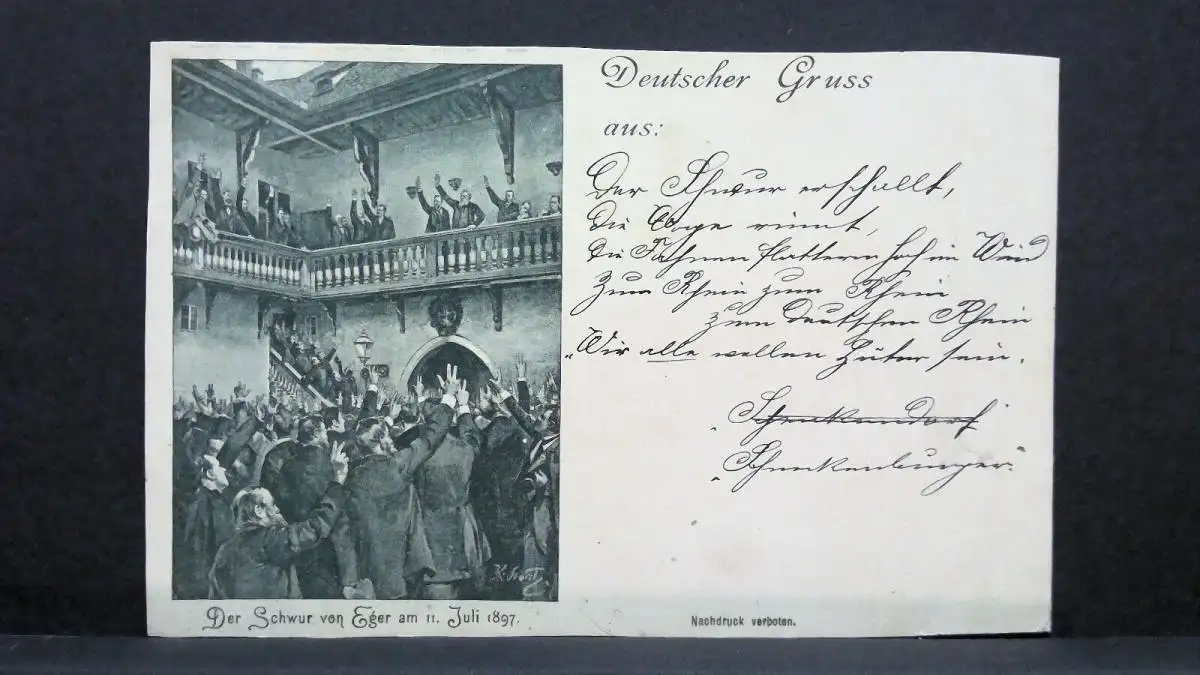 Deutscher Gruss
aus:
Der Schwur erschallt,
die Woge rinnt,
die Fahnen flattern hoch im Wind
Zum Rhein zum Rhein
zum deutschen Rhein
„Wir alle wollen Hüter sein.
Schenkendorf
Schneckenburger
Der Schwur von Eger am 11. Juli 1897.
Nachdruck verboten.